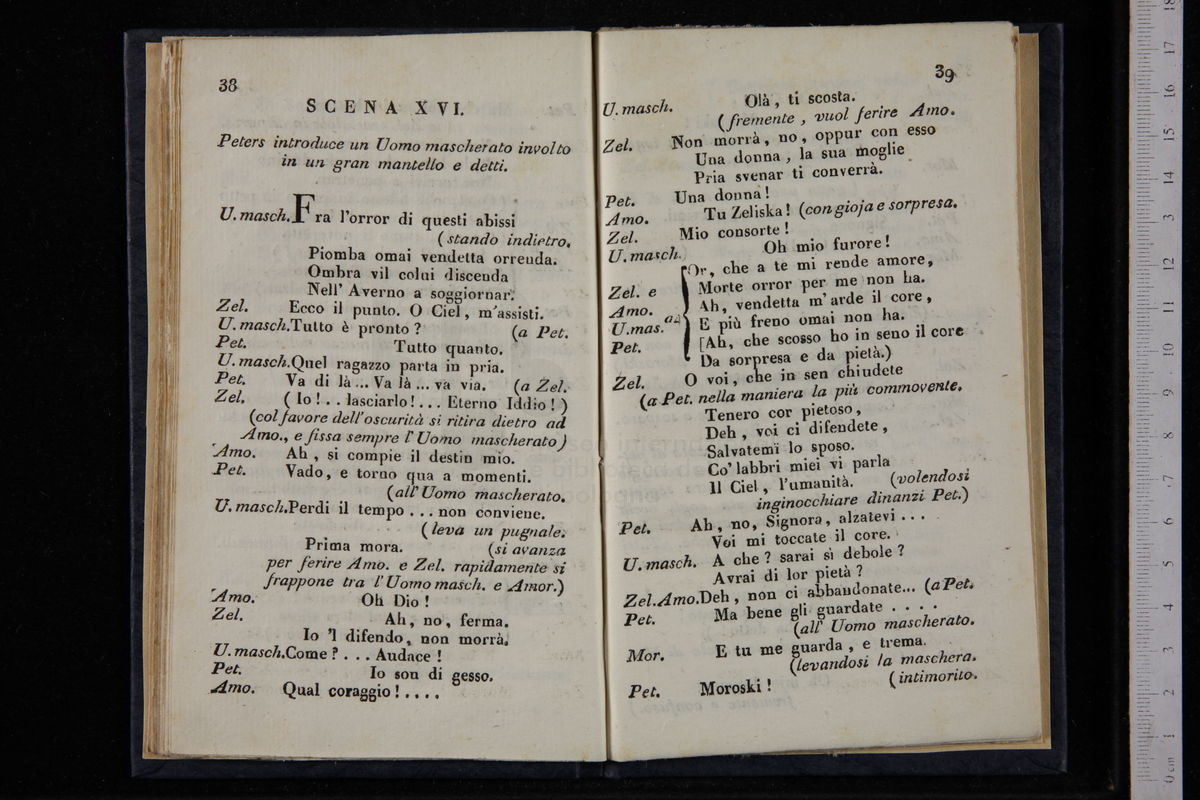 38
SCENA XVI.
Peters introduce un Uomo mascherato involto
in un gran mantello e detti.
U. masch. Fra l'orror di questi abissi
(stando indietro.
Piomba omai vendetta orrenda.
Ombra vil colui discenda
Nell' Averno a soggiornar.
Zel. Ecco il punto. O Ciel, m'assisti.
U. masch. Tutto è pronto ? (a Pet.
Pet. Tutto quanto.
U. masch. Quel ragazzo parta in pria.
Pet. Va di là ... Va là ... va via. (a Zel.
Zel. ( Io ! . . lasciarlo ! . . . Eterno Iddio ! )
(col favore dell'oscurità si ritira dietro ad
Amo., e fissa sempre l' Uomo mascherato)
Amo. Ah , si compie il destin mio.
Pet. Vado, e torno qua a momenti.
(all' Uomo mascherato.
U. masch. Perdi il tempo . . . non conviene.
(leva un pugnale.
Prima mora. (si avanza
per ferire Amo. e Zel. rapidamente si
frappone tra l' Uomo masch. e Amor.)
Amo. Oh Dio !
Zel. Ah, no, ferma.
Io 'l difendo, non morrà.
U. masch. Come ? . . . Audace !
Pet. Io son di gesso.
Amo. Qual coraggio ! . . . .
39
U. masch. Olà , ti scosta.
(fremente , vuol ferire Amo.
Zel. Non morrà , no , oppur con esso
Una donna , la sua moglie
Pria svenar ti converrà.
Pet. Una donna !
Amo. Tu Zeliska ! (con gioja e sorpresa.
Zel. Mio consorte !
U. masch. Oh mio furore !
Or, che a te mi rende amore,
Zel. e Morte orror per me non ha.
Amo. Ah, vendetta m'arde il core ,
U. mas. a4 E più freno omai non ha.
Pet. [Ah, che scosso ho in seno il core
Da sorpresa e da pietà.)
Zel. O voi, che in sen chiudete
(a Pet. nella maniera la più commovente.
Tenero cor pietoso ,
Deh , voi ci difendete ,
Salvatemi lo sposo.
Co' labbri miei vi parla
Il Ciel , l'umanità. (volendosi
inginocchiare dinanzi Pet.)
Pet. Ah , no, Signora, alzatevi . . .
Voi mi toccate il core.
U. masch. A che ? sarai sì debole ?
Avrai di lor pietà ?
Zel. Amo. Deh , non ci abbandonate... (a Pet.
Pet. Ma bene gli guardate . . . .
(all' Uomo mascherato.
Mor. E tu me guarda , e trema.
(levandosi la maschera.
Pet. Moroski ! (intimorito.